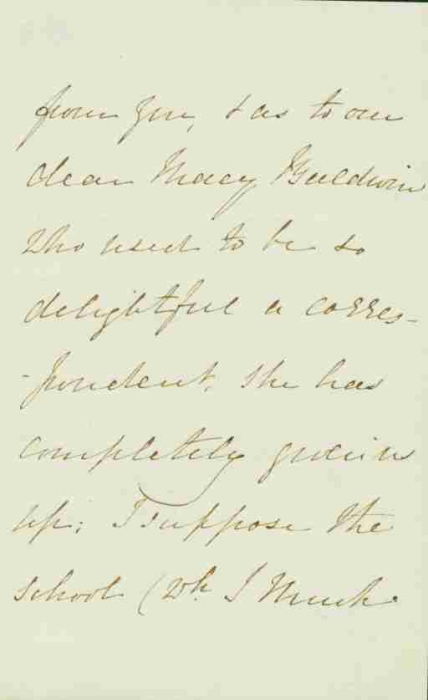 from you, & as to our
dear Macy Baldwin
who used to be so
delightful a corres-
-pondent, she has
completely given
up; I suppose the
school (wh I think